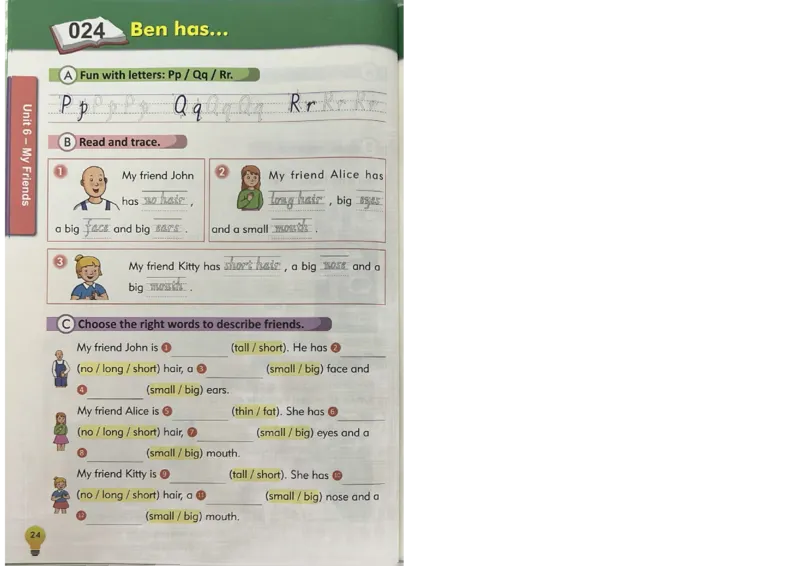 024 Ben has...
A Fun with letters: Pp / Qq / Rr.
P p P p P p Q q Q q Q q R r R r R r
B Read and trace.
1 My friend John
has no hair ,
a big face and big ears .
2 My friend Alice has
long hair , big eyes
and a small mouth .
3 My friend Kitty has short hair , a big nose and a
big mouth .
C Choose the right words to describe friends.
My friend John is 1 ________ (tall / short). He has 2 ________
(no / long / short) hair, a 3 ________ (small / big) face and
4 ________ (small / big) ears.
My friend Alice is 5 ________ (thin / fat). She has 6 ________
(no / long / short) hair, 7 ________ (small / big) eyes and a
8 ________ (small / big) mouth.
My friend Kitty is 9 ________ (tall / short). She has 10 ________
(no / long / short) hair, a 11 ________ (small / big) nose and a
12 ________ (small / big) mouth.
Unit 6 – My Friends
24